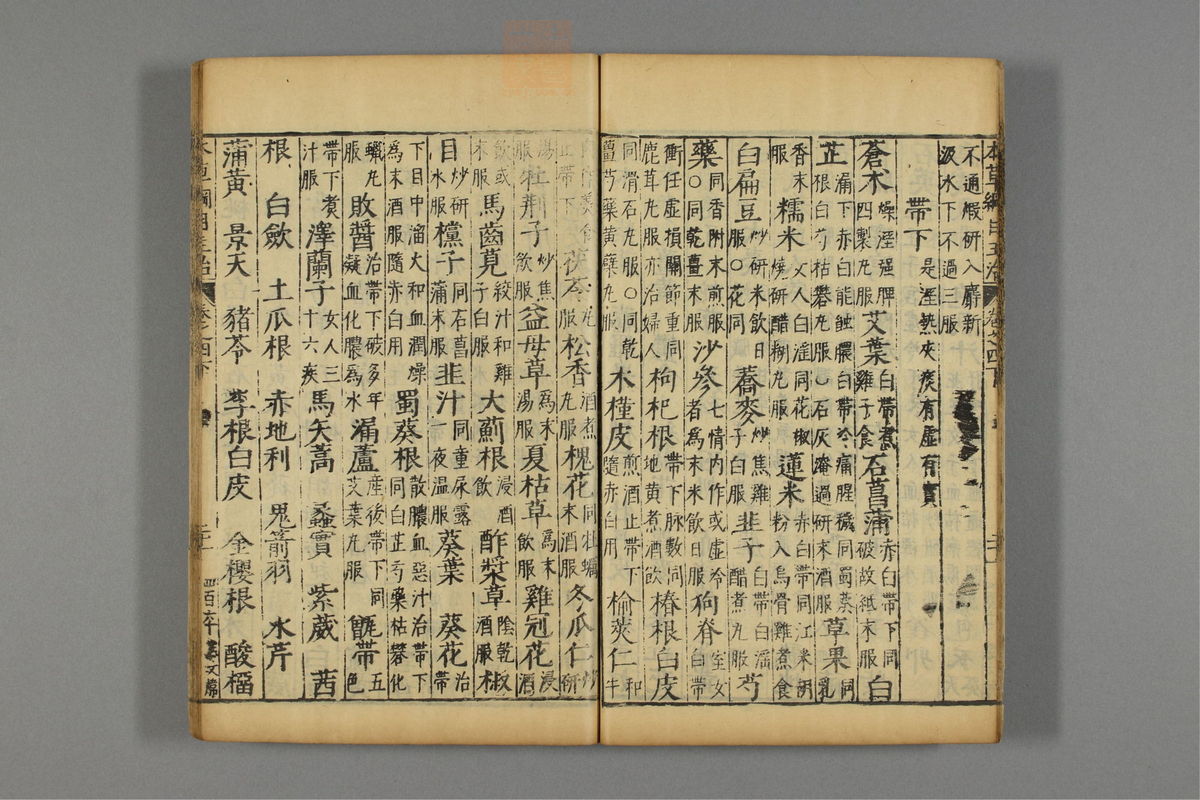 不通煅研入麝新汲水下不過三服
帶下 是溼熱夾痰有虛有實
蒼朮 燥溼强脾四製丸服 艾葉 白帶煮雞子食 石菖蒲 赤白帶下同破故紙末服 白
芷 漏下赤白能蝕膿白帶冷痛腥穢同蜀葵根白芍枯礬丸服○石灰淹過研末酒服 草果 同乳
香末服 糯米 女人白淫同花椒燒研醋糊丸服 蓮米 赤白帶同江米胡粉入烏骨雞煮食
白扁豆 炒研米飲日服○花同 蕎麥 炒焦雞子白服 韭子 白帶白淫醋煮丸服 芍
藥 同香附末煎服○同乾薑末服 沙參 七情內作或虛冷者爲末米飲日服 狗脊 室女白帶
衝任虛損關節重同鹿茸丸服亦治婦人 枸杞根 帶下脉數同地黃煮酒飲 椿根白皮
同滑石丸服○同乾薑芍藥黃蘗丸服 木槿皮 煎酒止帶下隨赤白用 榆莢仁 和牛
肉作羹食止帶下 茯苓 丸服 松香 酒煮丸服 槐花 同牡蠣末酒服 冬瓜仁 炒研
湯服 牡荊子 炒焦飲服 益母草 爲末湯服 夏枯草 爲末飲服 雞冠花 浸酒
飲或末服 馬齒莧 絞汁和雞子白服 大薊根 浸酒飲 酢漿草 陰乾酒服 椒
目 炒研水服 欓子 同石菖蒲末服 韭汁 同童尿露一夜溫服 葵葉 葵花 治帶
下目中溜火和血潤燥爲末酒服隨赤白用 蜀葵根 散膿血惡汁治帶下同白芷芍藥枯礬化
蠟丸服 敗醬 治帶下破多年凝血化膿爲水 漏蘆 產後帶下同艾葉丸服 甑帶 五色
帶下煮汁服 澤蘭子 女人三十六疾 馬矢蒿 蠡實 紫葳 茜
根 白斂 土瓜根 赤地利 鬼箭羽 水芹
蒲黃 景天 豬苓 李根白皮 金櫻根 酸榴